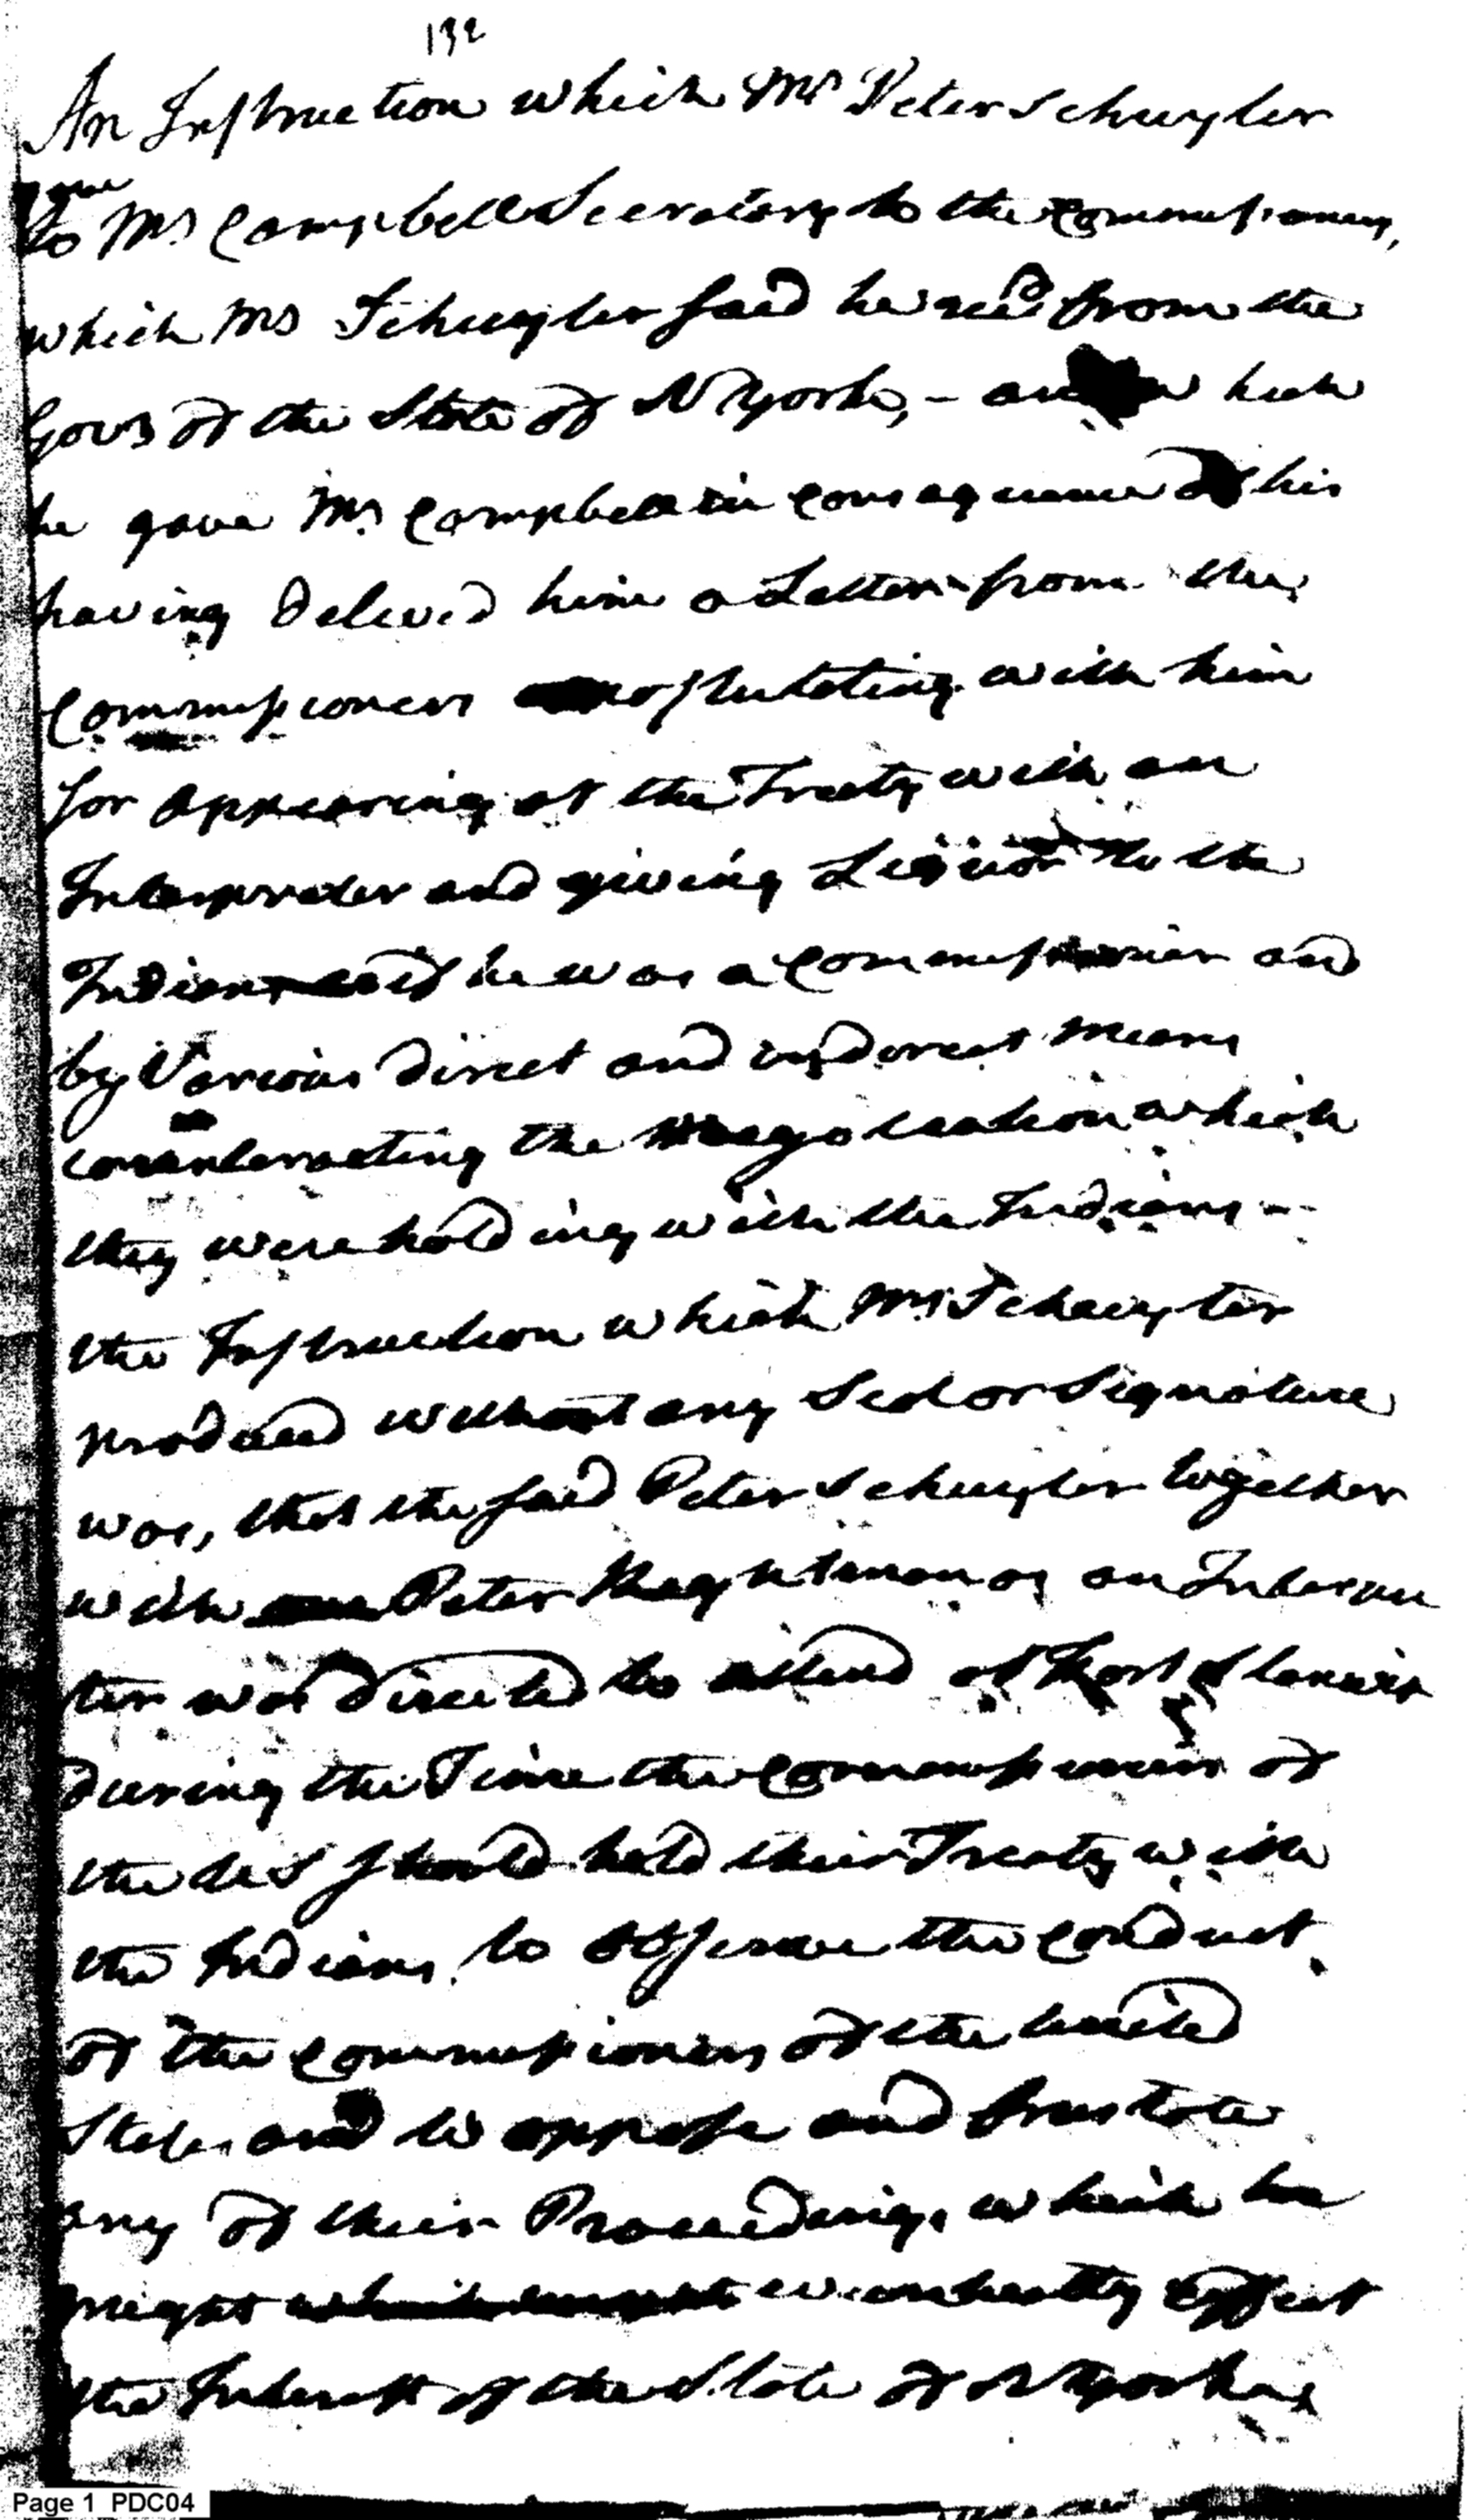 132
An Instruction which Mr Peter Schuyler
gave
to Mr Campbell Secretary to the Commissioners,
which Mr Schuyler said he recd from the
Govr of the State of N York, - and which
he gave Mr Campbell in consequence of his
having delived him a Letter from the
Commissioners expostulating with him
for appearing at the Treaty with an
Interpreter and giving Liquor to the
Indians he was a Commissioner and
by Various direct and indirect means
counteracting the Negociation which
they were holding with the Indians --
the Instruction which Mr Schuyler
produced without any Seal or Signature
was, that the said Peter Schuyler together
with Peter as an Interpre
ter was directed to attend at Fort Stanwix
during the Time the Commissioners of
the US should hold their Treaty with
the Indians, to observe the Conduct
of the Commissioners of the United
States and to oppose and frustrate
any of their Proceedings which he
might eventually Effect
the Interest of the State of N York
Page 1 PDC04